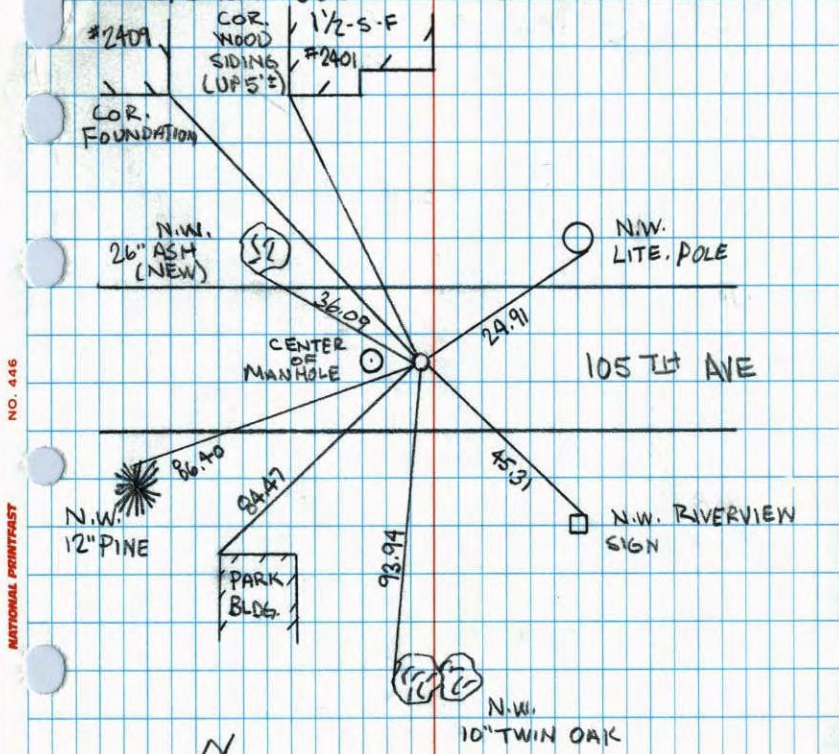 #2409
COR.
WOOD
SIDING
(UP 5'±)
1½-S-F
#2401
COR.
FOUNDATION
N.W.
26" ASH
(NEW)
36.09
N.W.
LITE. POLE
29.91
CENTER
OF
MANHOLE
105 TH AVE
86.40
84.47
45.31
N.W.
12" PINE
93.94
N.W. RIVERVIEW
SIGN
PARK
BLDG.
N.W.
10" TWIN OAK
NO. 446
NATIONAL PRINTFAST